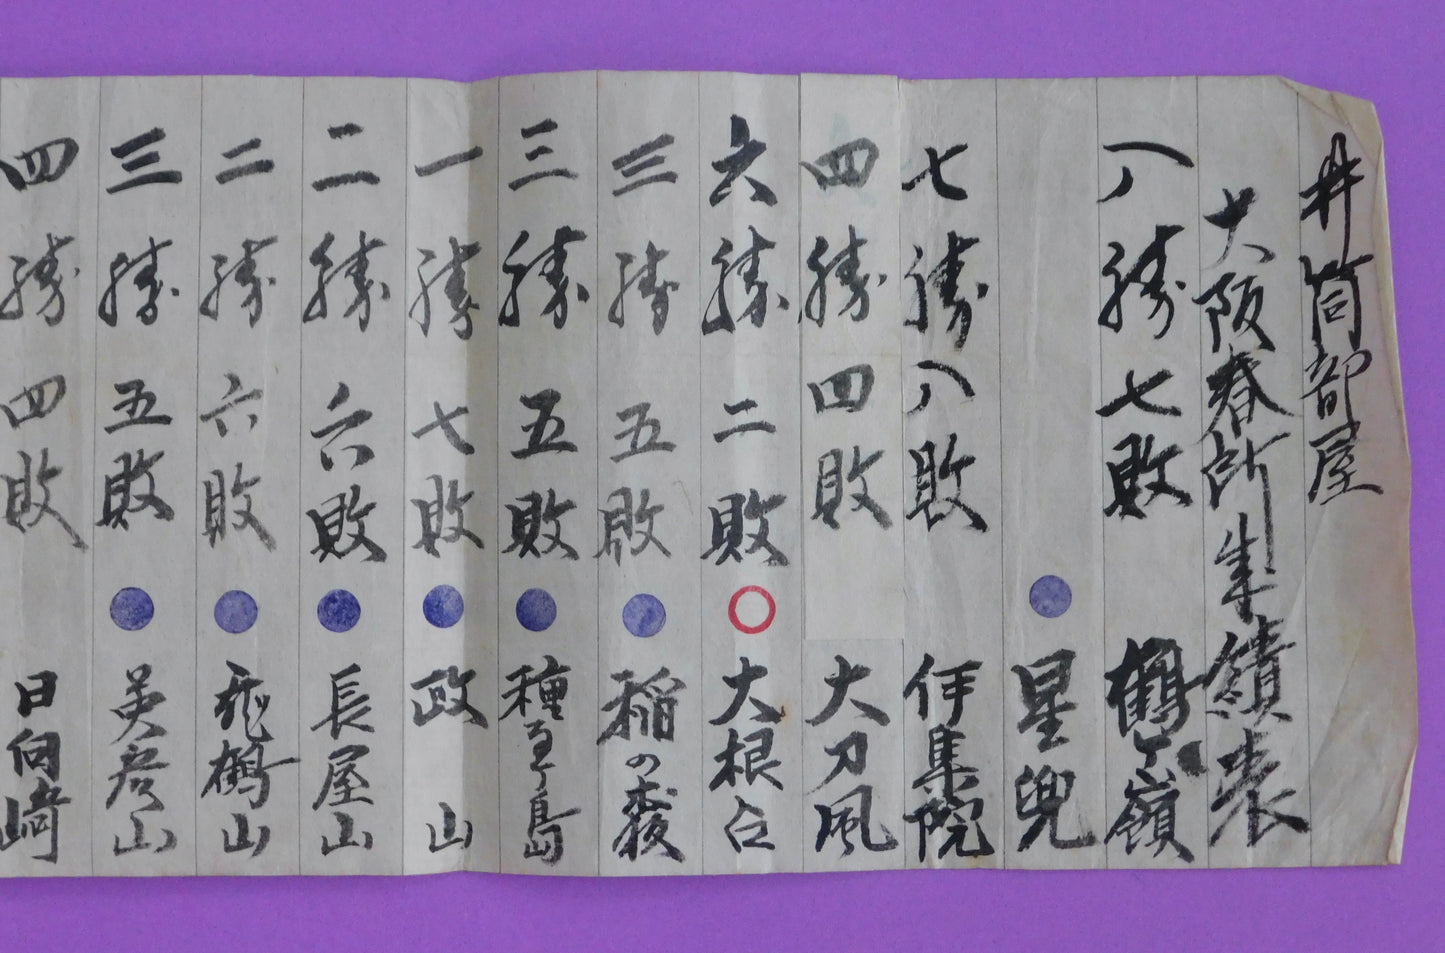 井筒部屋
大阪春所成績表
八勝七敗 鶴ヶ嶺
星兜
七勝八敗 伊集院
四勝四敗 大刀風
六勝二敗 大根占
三勝五敗 稲の森
三勝五敗 種子ヶ島
一勝七敗 政山
二勝六敗 長屋山
二勝六敗 飛鶴山
三勝五敗 英彦山
四勝四敗 日向崎